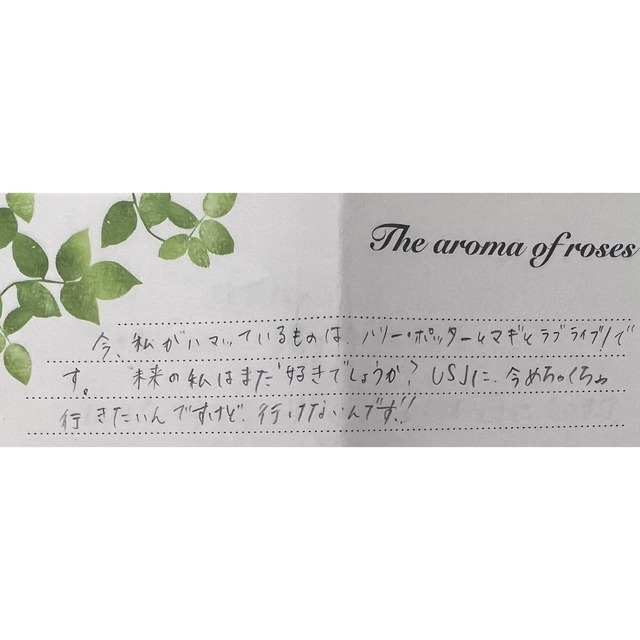 The aroma of roses
今、私がハマっているものは、ハリー・ポッターとマギとラブライブ!で
す。未来の私はまだ好きでしょうか?USJに、今めちゃくちゃ
行きたいんですけど、行けないんです!!